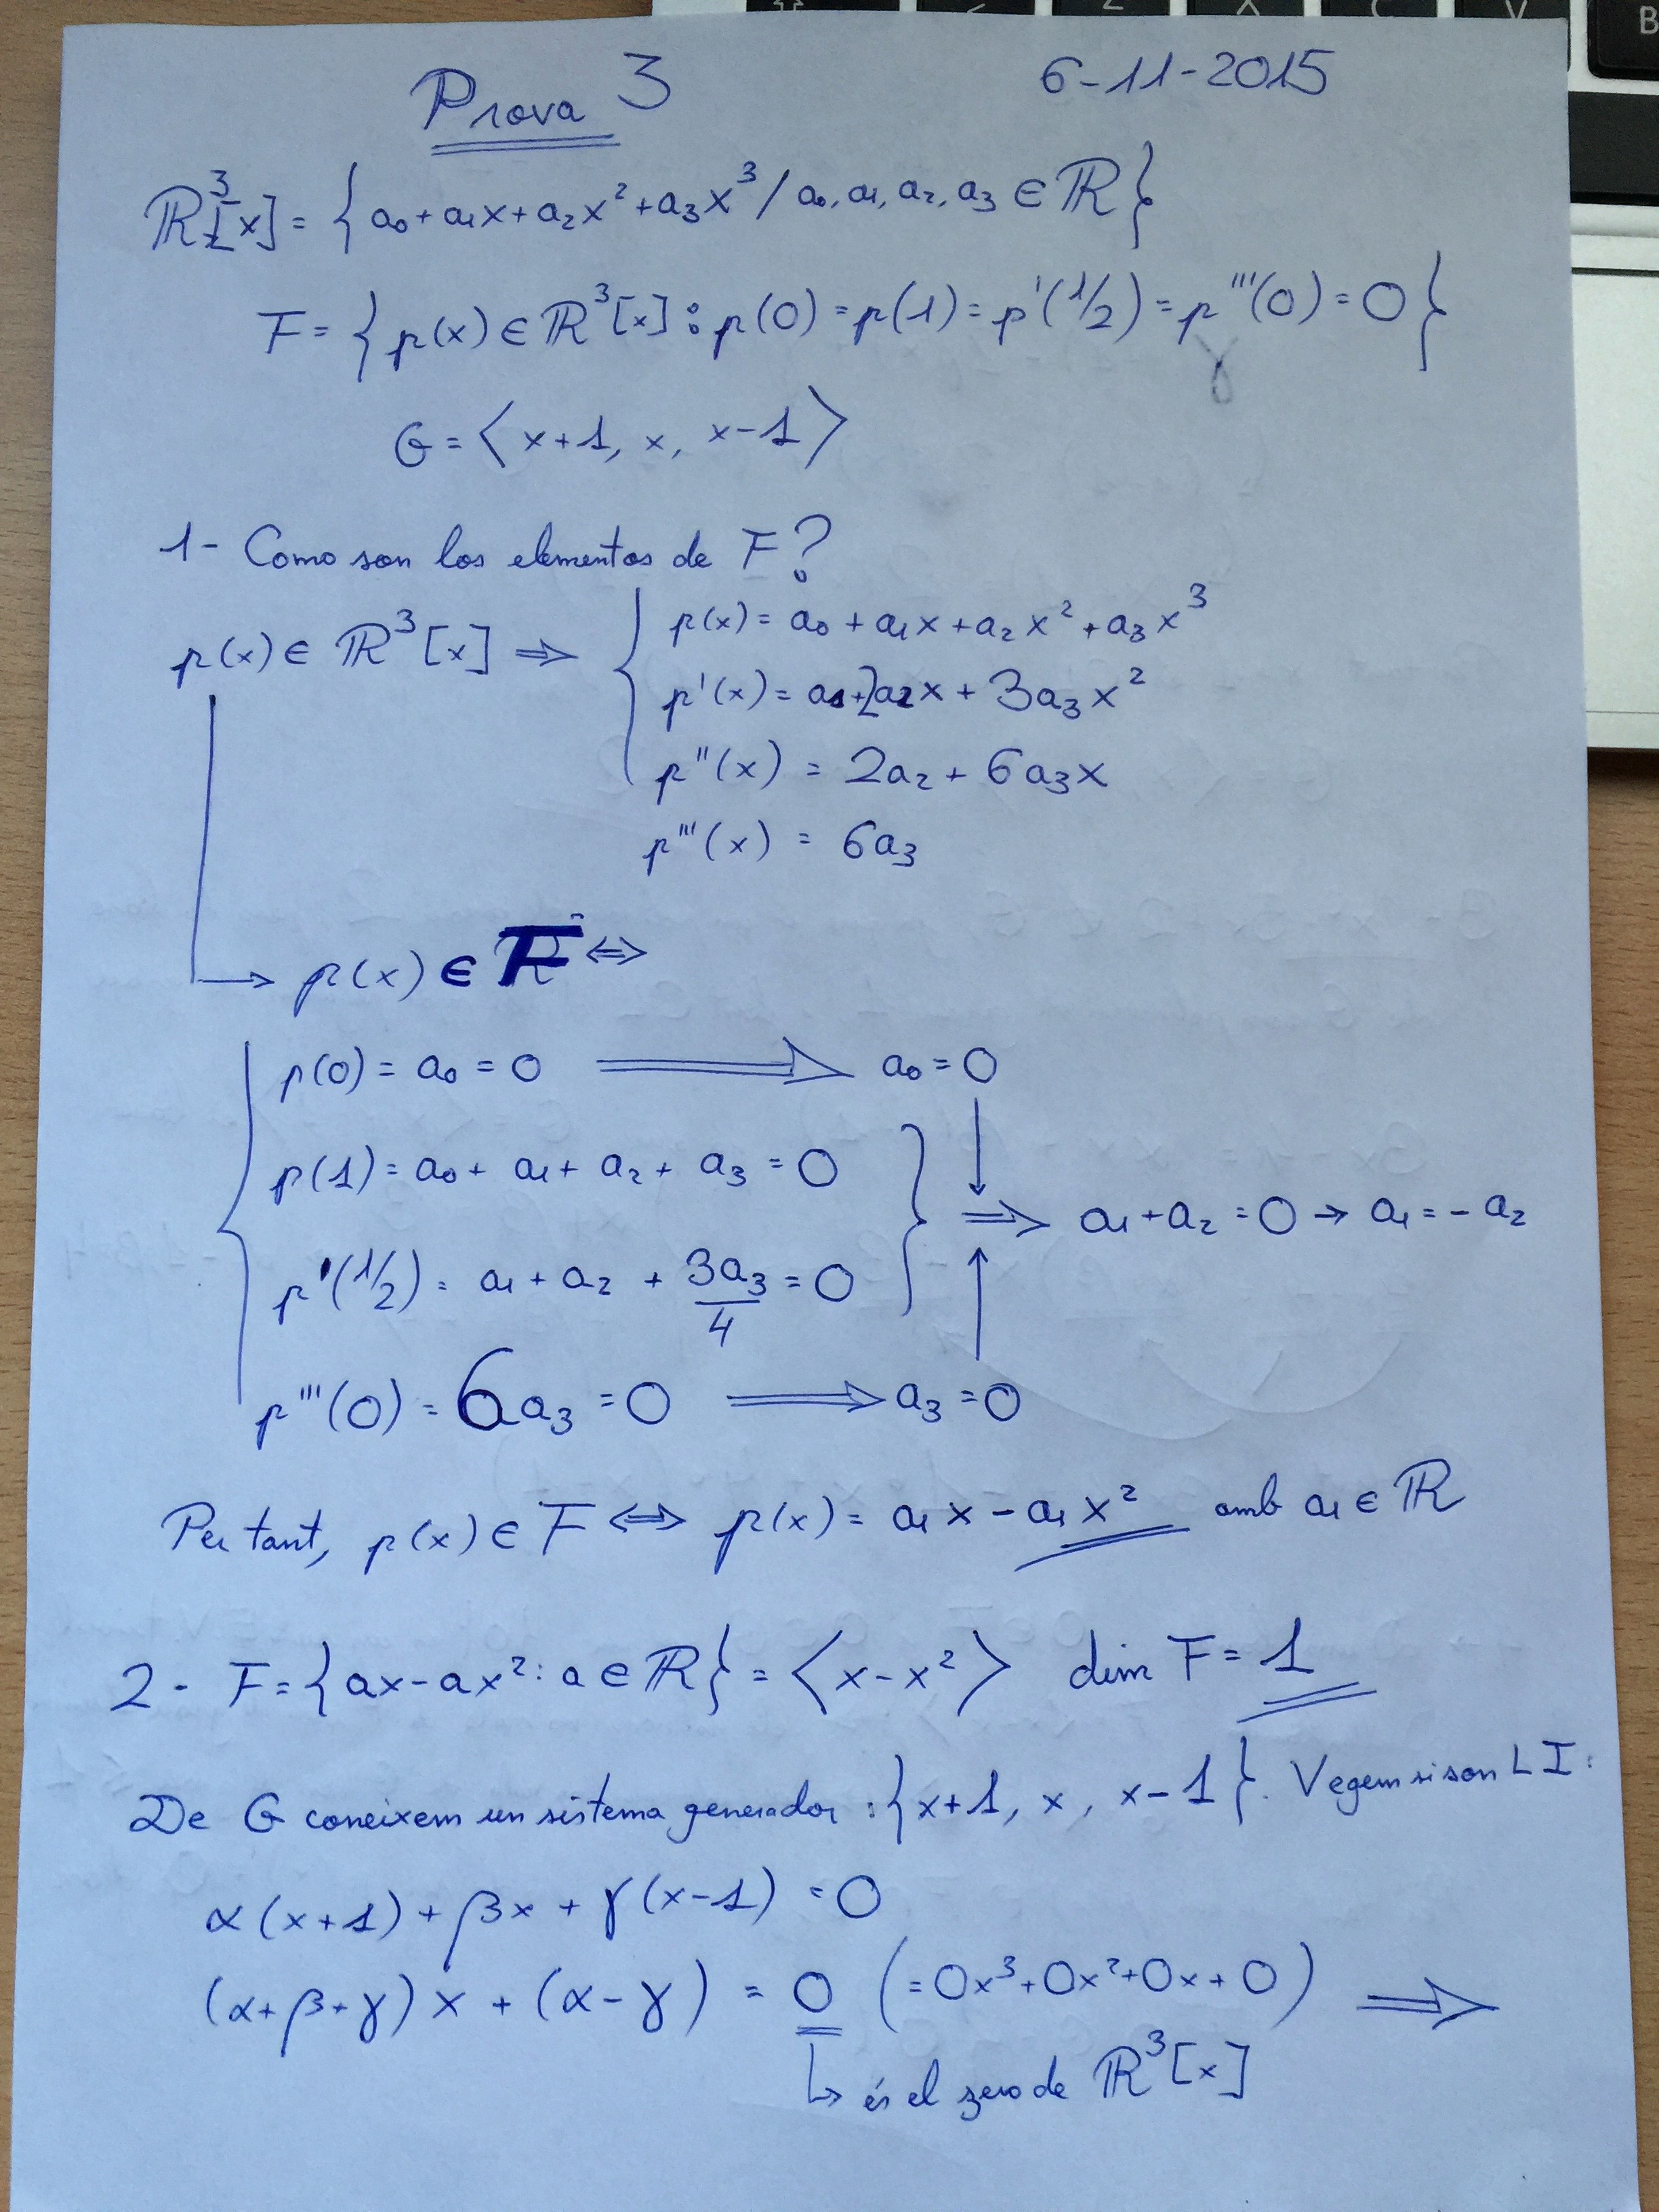 Prova 3 6-11-2015
ℝ³[x] = { a₀ + a₁x + a₂x² + a₃x³ / a₀, a₁, a₂, a₃ ∈ ℝ }
F = { p(x) ∈ ℝ³[x] : p(0) = p(1) = p'(1/2) = p'''(0) = 0 }
G = ⟨ x+1, x, x-1 ⟩
1- Como son los elementos de F?
p(x) ∈ ℝ³[x] ⇒ { p(x) = a₀ + a₁x + a₂x² + a₃x³
p'(x) = a₁ + 2a₂x + 3a₃x²
p''(x) = 2a₂ + 6a₃x
p'''(x) = 6a₃
→ p(x) ∈ F ⇔
p(0) = a₀ = 0 ⇒ a₀ = 0
p(1) = a₀ + a₁ + a₂ + a₃ = 0
⇒ a₁ + a₂ = 0 → a₁ = - a₂
p'(1/2) = a₁ + a₂ + 3a₃/4 = 0
p'''(0) = 6a₃ = 0 ⇒ a₃ = 0
Per tant, p(x) ∈ F ⇔ p(x) = a₁x - a₁x² amb a₁ ∈ ℝ
2- F = { ax - ax² : a ∈ ℝ } = ⟨ x - x² ⟩ dim F = 1
De G coneixem un sistema generador : { x+1, x, x-1 }. Vegem si son LI :
α(x+1) + βx + γ(x-1) = 0
(α+β+γ)x + (α-γ) = 0 (= 0x³ + 0x² + 0x + 0) ⇒
↳ és el zero de ℝ³[x]